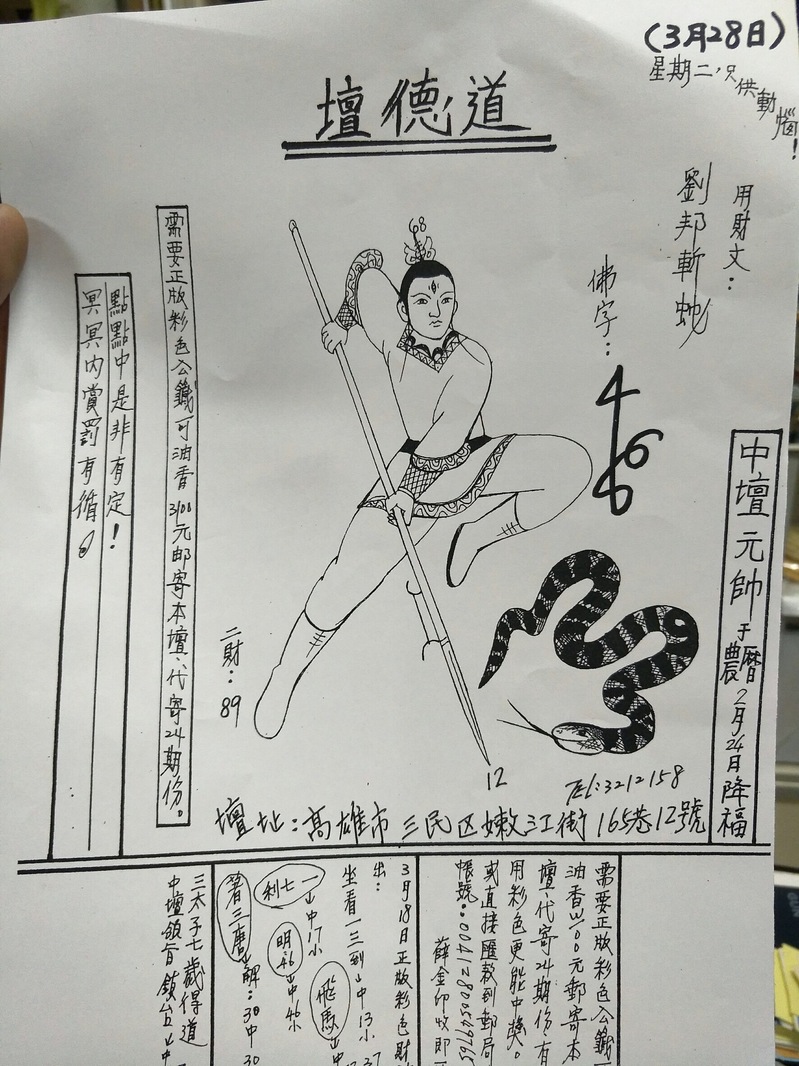 (3月28日)
星期二，只供動惱！
壇德道
用財文：
劉邦斬蛇
佛字：
466
68
中壇元帥于農曆2月24日降福
需要正版彩色公籤可油香3100元郵寄本壇、代寄24期份。
點點中是非有定！
冥冥內賞罰有循。
二財：89
12
Tel:3212158
壇址：高雄市三民区嫩江街165巷12號
需要正版彩色公籤
油香3100元郵寄本
壇、代寄24期份、有
用彩色更能中獎。
或直接匯款到郵局
帳號：00412800549765
薛金印收即
3月18日正版彩色財
出：
坐看一三到 中13小37
飛馬 中
一七利 中17小
明46 中46小
著三磨 解：30中30
三太子七歲得道
中壇領旨鎮台 中